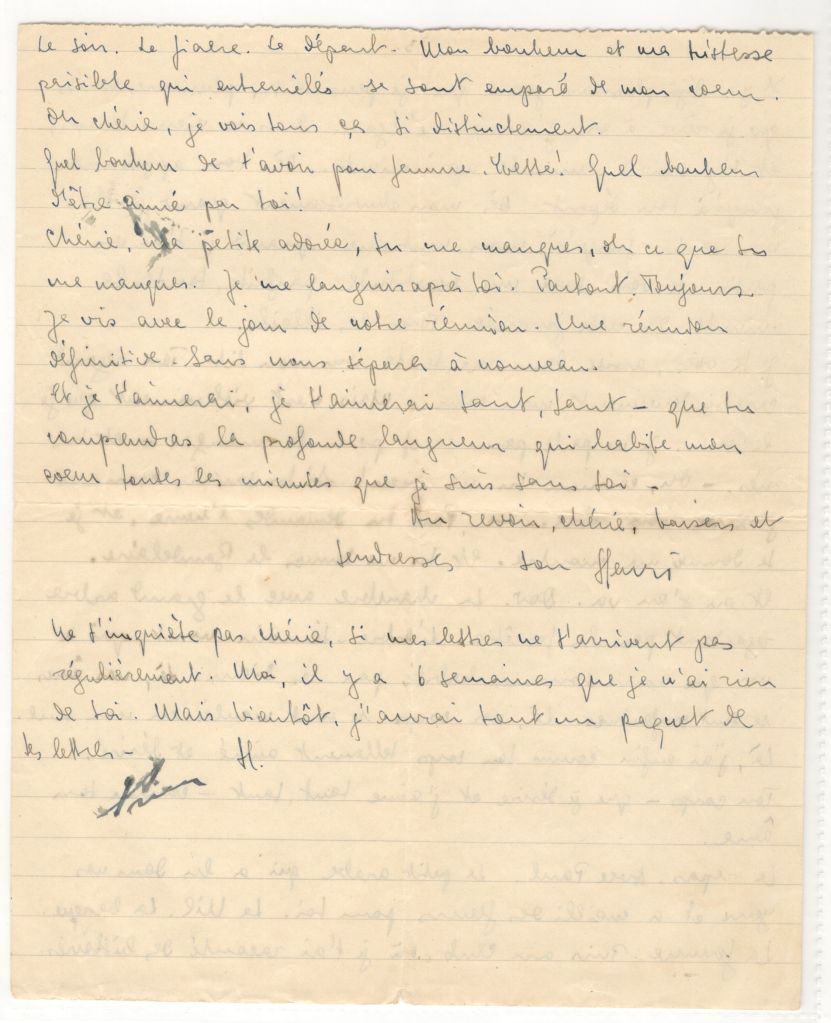 Le soir. Le fiacre. Le départ. Mon bonheur et ma tristesse
paisible qui entremêlés se sont emparé de mon coeur.
Oh chérie, je vois tous ça si distinctement.
Quel bonheur de t'avoir pour femme. Yvette! Quel bonheur
d'être aimé par toi!
Chérie, ma petite adorée, tu me manques, oh ce que tu
me manques. Je me languis après toi. Partout. Toujours.
Je vis avec le jour de notre réunion. Une réunion
définitive. Sans nous séparer à nouveau.
Et je t'aimerai, je t'aimerai tant, tant – que tu
comprendras la profonde langueur qui habite mon
coeur toutes les minutes que je suis sans toi –
Au revoir, chérie, baisers et
tendresses ton Henri
Ne t'inquiète pas chérie, si mes lettres ne t'arrivent pas
régulièrement. Moi, il y a 6 semaines que je n'ai rien
de toi. Mais bientôt, j'aurai tout un paquet de
tes lettres – H.